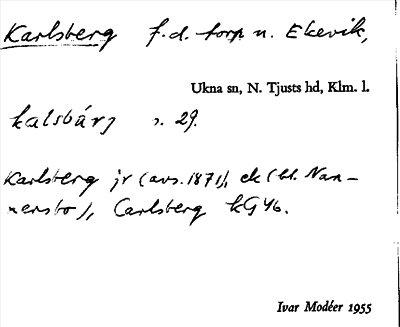 Karlsberg f.d. torp u. Ekevik,
Ukna sn, N. Tjusts hd, Klm. l.
kalsbárj s. 29.
Karlsberg jr (avs. 1871), ek (bl. Nan–
nersbo), Carlsberg kG 46.
Ivar Modéer 1955